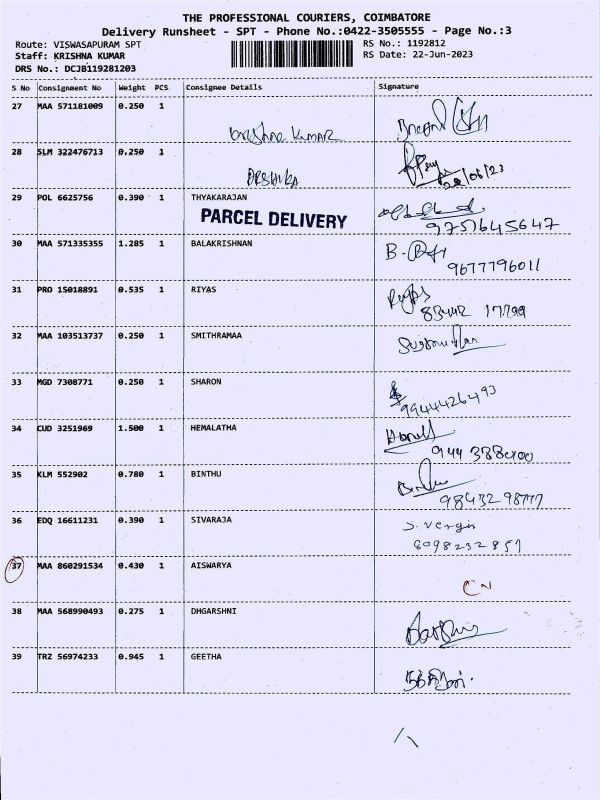 THE PROFESSIONAL COURIERS, COIMBATORE
Delivery Runsheet - SPT - Phone No.:0422-3505555 - Page No.:3
Route: VISWASAPURAM SPT RS No.: 1192812
Staff: KRISHNA KUMAR RS Date: 22-Jun-2023
DRS No.: DCJB119281203
S No Consignment No Weight PCS Consignee Details Signature
27 MAA 571181009 0.250 1
28 SLM 322476713 0.250 1
DRSHIKA
29 POL 6625756 0.390 1 THYAKARAJAN
PARCEL DELIVERY 9751645647
30 MAA 571335355 1.285 1 BALAKRISHNAN B.
9677796011
31 PRO 15018891 0.535 1 RIYAS
32 MAA 103513737 0.250 1 SMITHRAMAA
33 MGD 7308771 0.250 1 SHARON
9944426493
34 CUD 3251969 1.500 1 HEMALATHA
35 KLM 552902 0.780 1 BINTHU
36 EDQ 16611231 0.390 1 SIVARAJA
8098232857
37 MAA 860291534 0.430 1 AISWARYA
CN
38 MAA 568990493 0.275 1 DHGARSHNI
39 TRZ 56974233 0.945 1 GEETHA